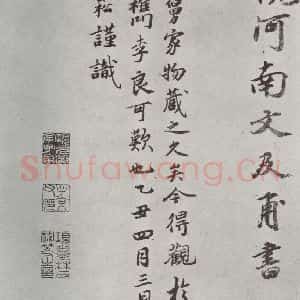 河南文友甫書
舅家物藏之久矣今得觀於
李良可歎也乙丑四月三日
謹識
Shufawang.CN